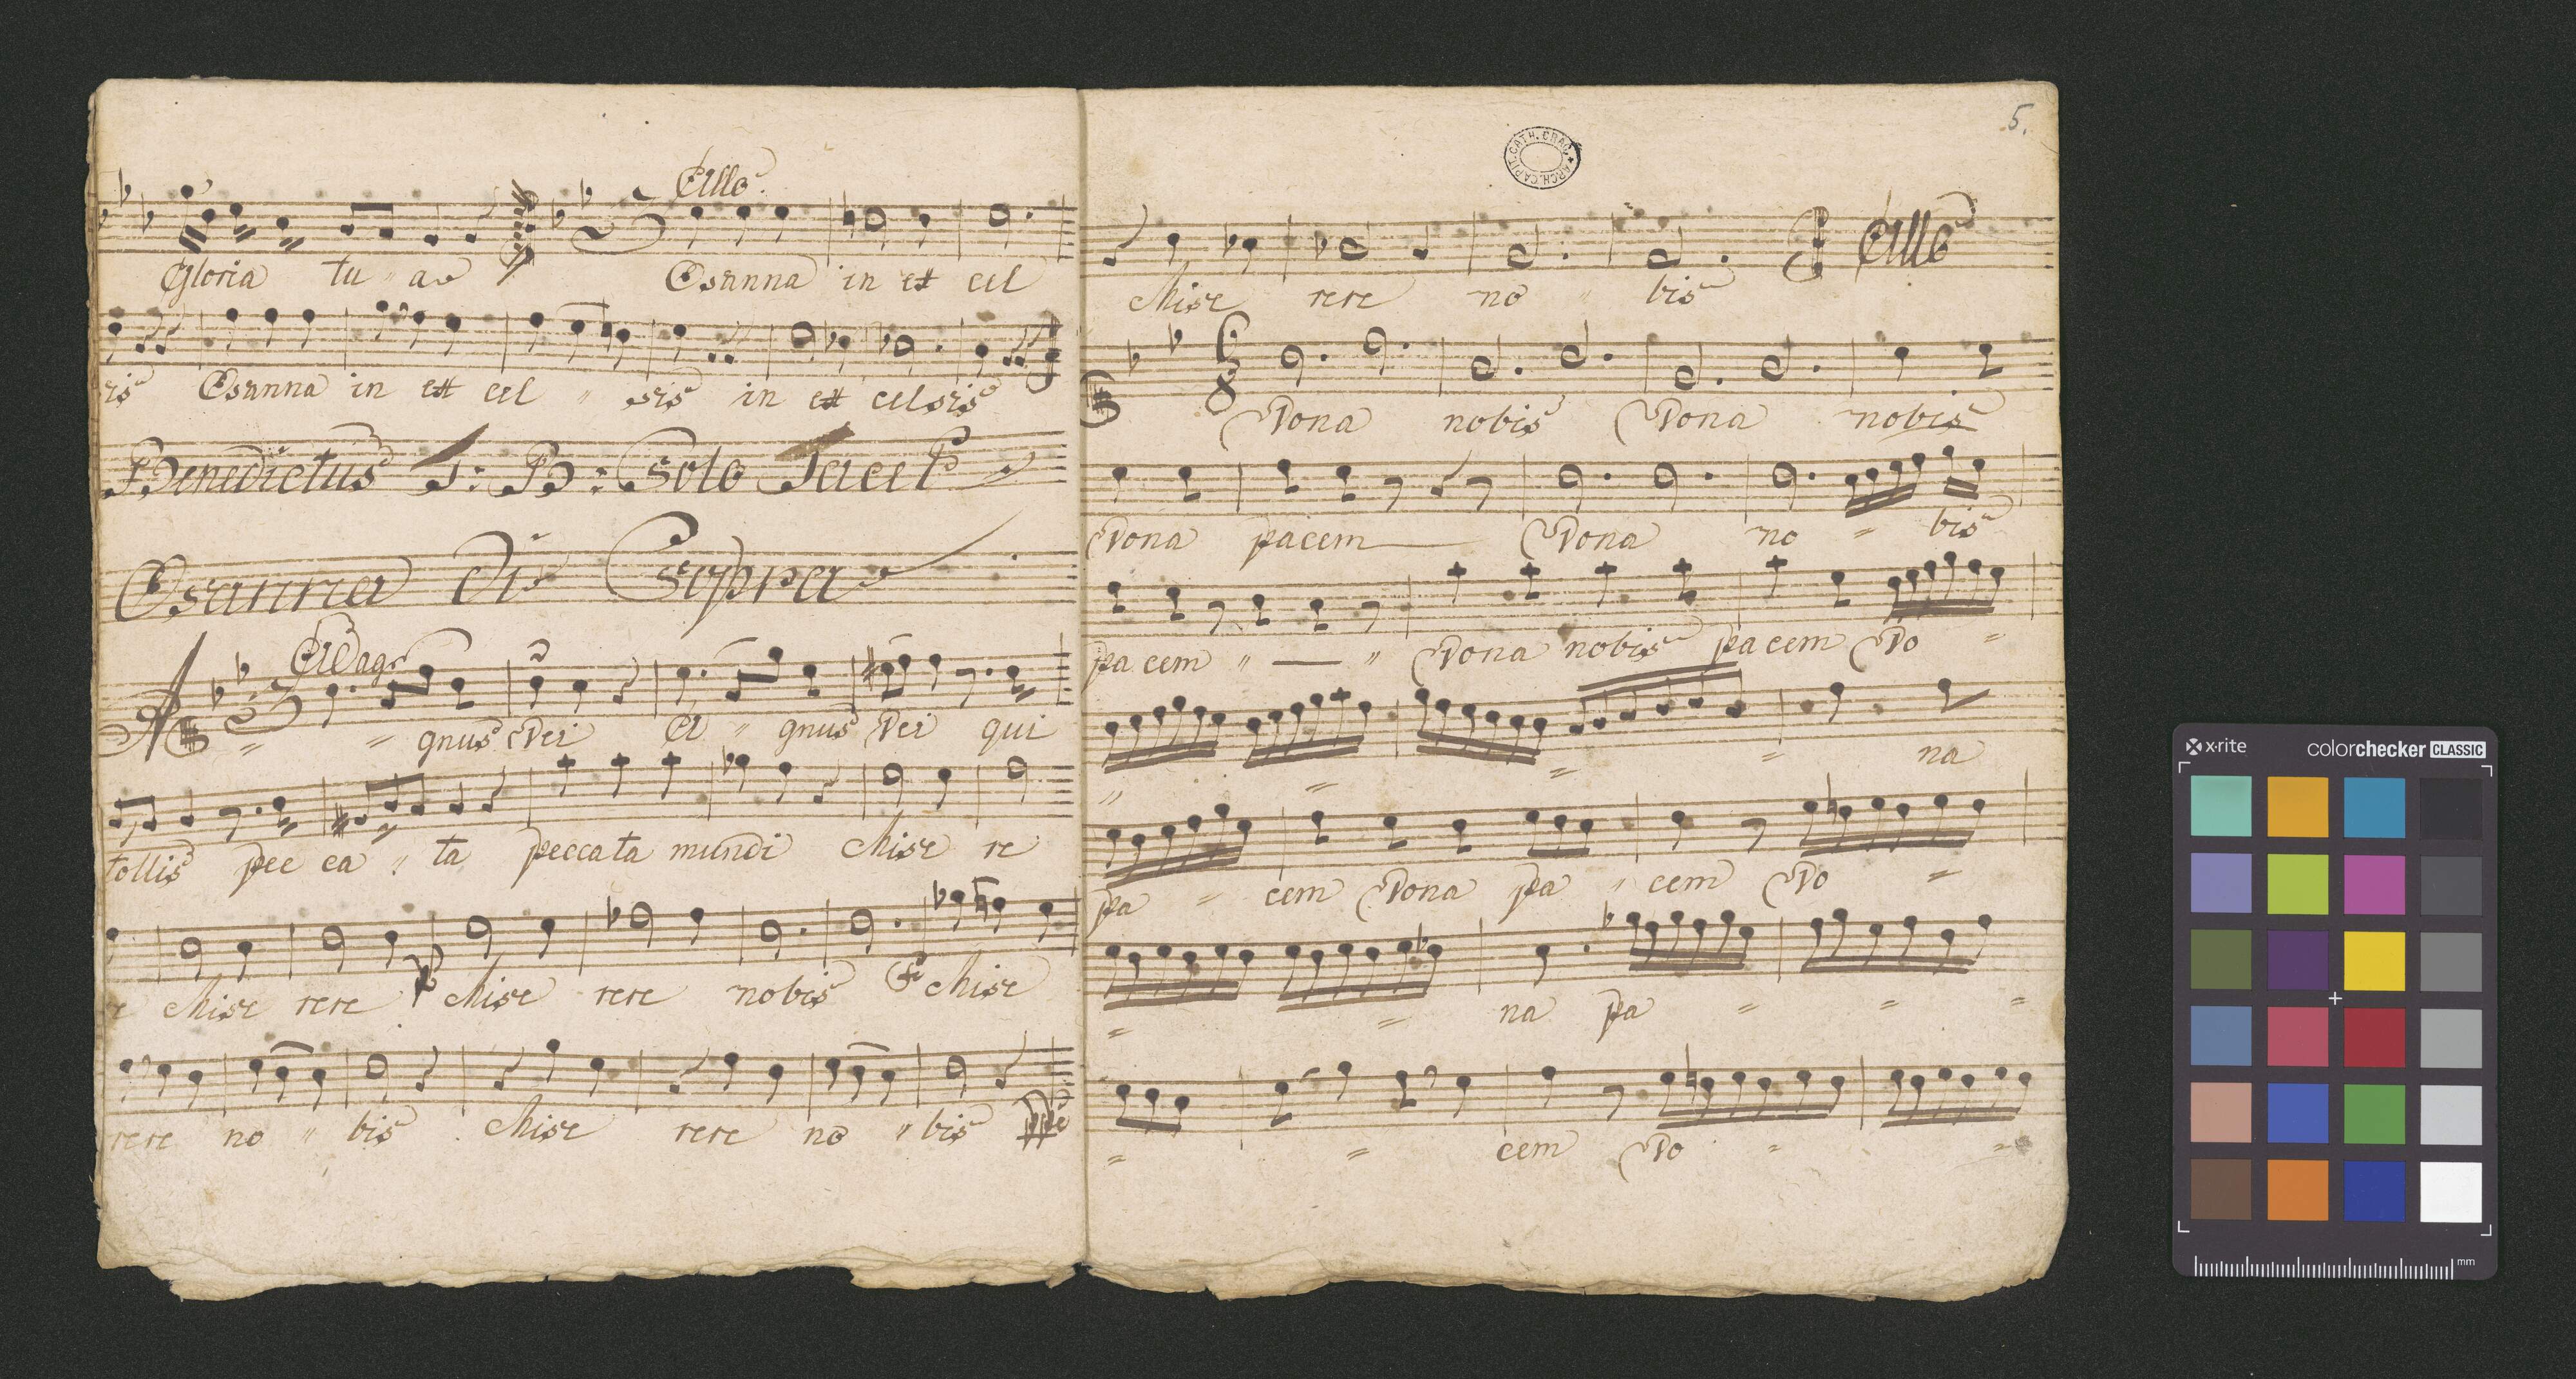 Allo
Gloria tu " ae Osanna in ex cel
sis Osanna in ex cel " sis in ex celsis
Benedictus S: B: Solo Tacet
Osanna Di Sopra
Adag
A = = gnus Dei A " gnus Dei qui
tollis pec ca " ta peccata mundi Mise re
re Mise rere p Mise rere nobis F Mise
rere no " bis Mise rere no " bis ppe
5.
ARCH. CAPIT. CATH. CRAC.
Allo
Mise rere no " bis
6
8
Dona nobis Dona nobis
Dona pacem Dona no = bis
pa cem " — " Dona nobis pa cem Do =
" = = = na
pa = cem Dona pa " cem Do =
= = na pa = = =
= = cem Do = =
x-rite colorchecker CLASSIC
mm